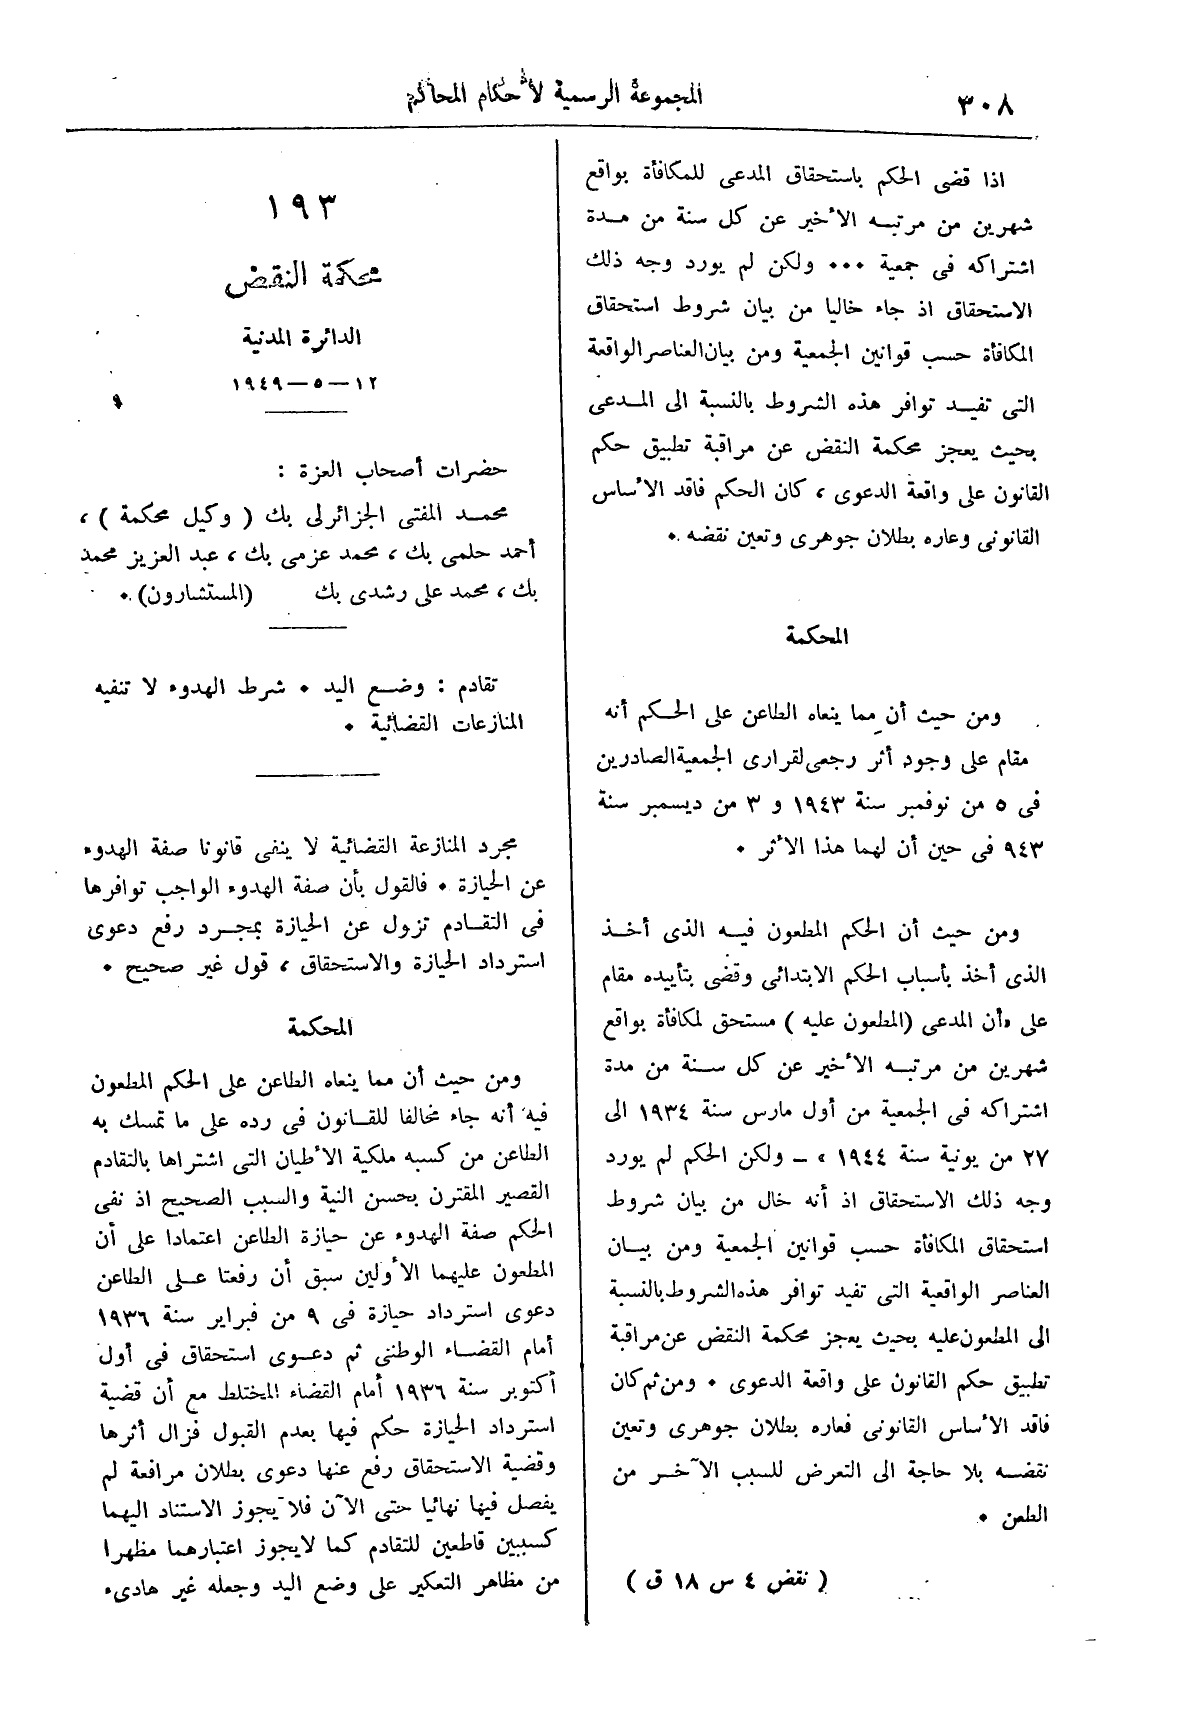 ٣٠٨
المجموعة الرسمية لأحكام المحاكم
اذا قضى الحكم باستحقاق المدعى للمكافأة بواقع
شهرين من مرتبه الأخير عن كل سنة من مدة
اشتراكه فى جمعية ... ولكن لم يورد وجه ذلك
الاستحقاق اذ جاء خاليا من بيان شروط استحقاق
المكافأة حسب قوانين الجمعية ومن بيان العناصر الواقعة
التى تفيد توافر هذه الشروط بالنسبة الى المدعى
بحيث يعجز محكمة النقض عن مراقبة تطبيق حكم
القانون على واقعة الدعوى ، كان الحكم فاقد الأساس
القانونى وعاره بطلان جوهرى وتعين نقضه .
المحكمة
ومن حيث أن مما ينعاه الطاعن على الحكم أنه
مقام على وجود أثر رجعى لقرارى الجمعية الصادرين
فى ٥ من نوفمبر سنة ١٩٤٣ و ٣ من ديسمبر سنة
٩٤٣ فى حين أن لهما هذا الأثر .
ومن حيث أن الحكم المطعون فيه الذى أخذ
الذى أخذ بأسباب الحكم الابتدائى وقضى بتأييده مقام
على «أن المدعى (المطعون عليه ) مستحق لمكافأة بواقع
شهرين من مرتبه الأخير عن كل سنة من مدة
اشتراكه فى الجمعية من أول مارس سنة ١٩٣٤ الى
٢٧ من يونية سنة ١٩٤٤ » – ولكن الحكم لم يورد
وجه ذلك الاستحقاق اذ أنه خال من بيان شروط
استحقاق المكافأة حسب قوانين الجمعية ومن بيان
العناصر الواقعية التى تفيد توافر هذه الشروط بالنسبة
الى المطعون عليه بحيث يعجز محكمة النقض عن مراقبة
تطبيق حكم القانون على واقعة الدعوى . ومن ثم كان
فاقد الأساس القانونى فعاره بطلان جوهرى وتعين
نقضه بلا حاجة الى التعرض للسبب الآخر من
الطعن .
( نقض ٤ س ١٨ ق )
١٩٣
محكمة النقض
الدائرة المدنية
١٢ – ٥ – ١٩٤٩
حضرات أصحاب العزة :
محمد المفتى الجزائرلى بك ( وكيل محكمة ) ،
أحمد حلمى بك ، محمد عزمى بك ، عبد العزيز محمد
بك ، محمد على رشدى بك (المستشارون) .
تقادم : وضع اليد . شرط الهدوء لا تنفيه
المنازعات القضائية .
مجرد المنازعة القضائية لا ينفى قانونا صفة الهدوء
عن الحيازة . فالقول بأن صفة الهدوء الواجب توافرها
فى التقادم تزول عن الحيازة بمجرد رفع دعوى
استرداد الحيازة والاستحقاق ، قول غير صحيح .
المحكمة
ومن حيث أن مما ينعاه الطاعن على الحكم المطعون
فيه أنه جاء مخالفا للقانون فى رده على ما تمسك به
الطاعن من كسبه ملكية الأطيان التى اشتراها بالتقادم
القصير المقترن بحسن النية والسبب الصحيح اذ نفى
الحكم صفة الهدوء عن حيازة الطاعن اعتمادا على أن
المطعون عليهما الأولين سبق أن رفعتا على الطاعن
دعوى استرداد حيازة فى ٩ من فبراير سنة ١٩٣٦
أمام القضاء الوطنى ثم دعوى استحقاق فى أول
أكتوبر سنة ١٩٣٦ أمام القضاء المختلط مع أن قضية
استرداد الحيازة حكم فيها بعدم القبول فزال أثرها
وقضية الاستحقاق رفع عنها دعوى بطلان مرافعة لم
يفصل فيها نهائيا حتى الآن فلا يجوز الاستناد اليهما
كسببين قاطعين للتقادم كما لايجوز اعتبارهما مظهرا
من مظاهر التعكير على وضع اليد وجعله غير هادىء